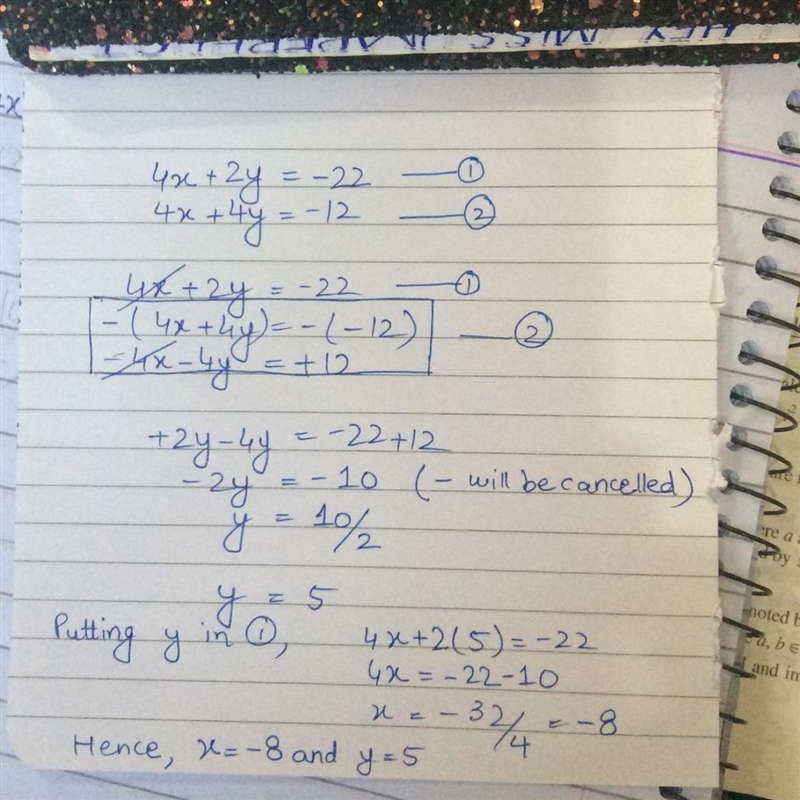 HEY MISS
4x + 2y = -22 —— ①
4x + 4y = -12 —— ②
4x + 2y = -22 —— ①
-(4x+4y) = -(-12) —— ②
-4x - 4y = +12
+2y - 4y = -22 + 12
-2y = -10 (- will be cancelled)
y = 10/2
y = 5
Putting y in ①, 4x + 2(5) = -22
4x = -22 - 10
x = -32/4 = -8
Hence, x = -8 and y = 5
ere a
d by
noted b
a, b ∈
and im